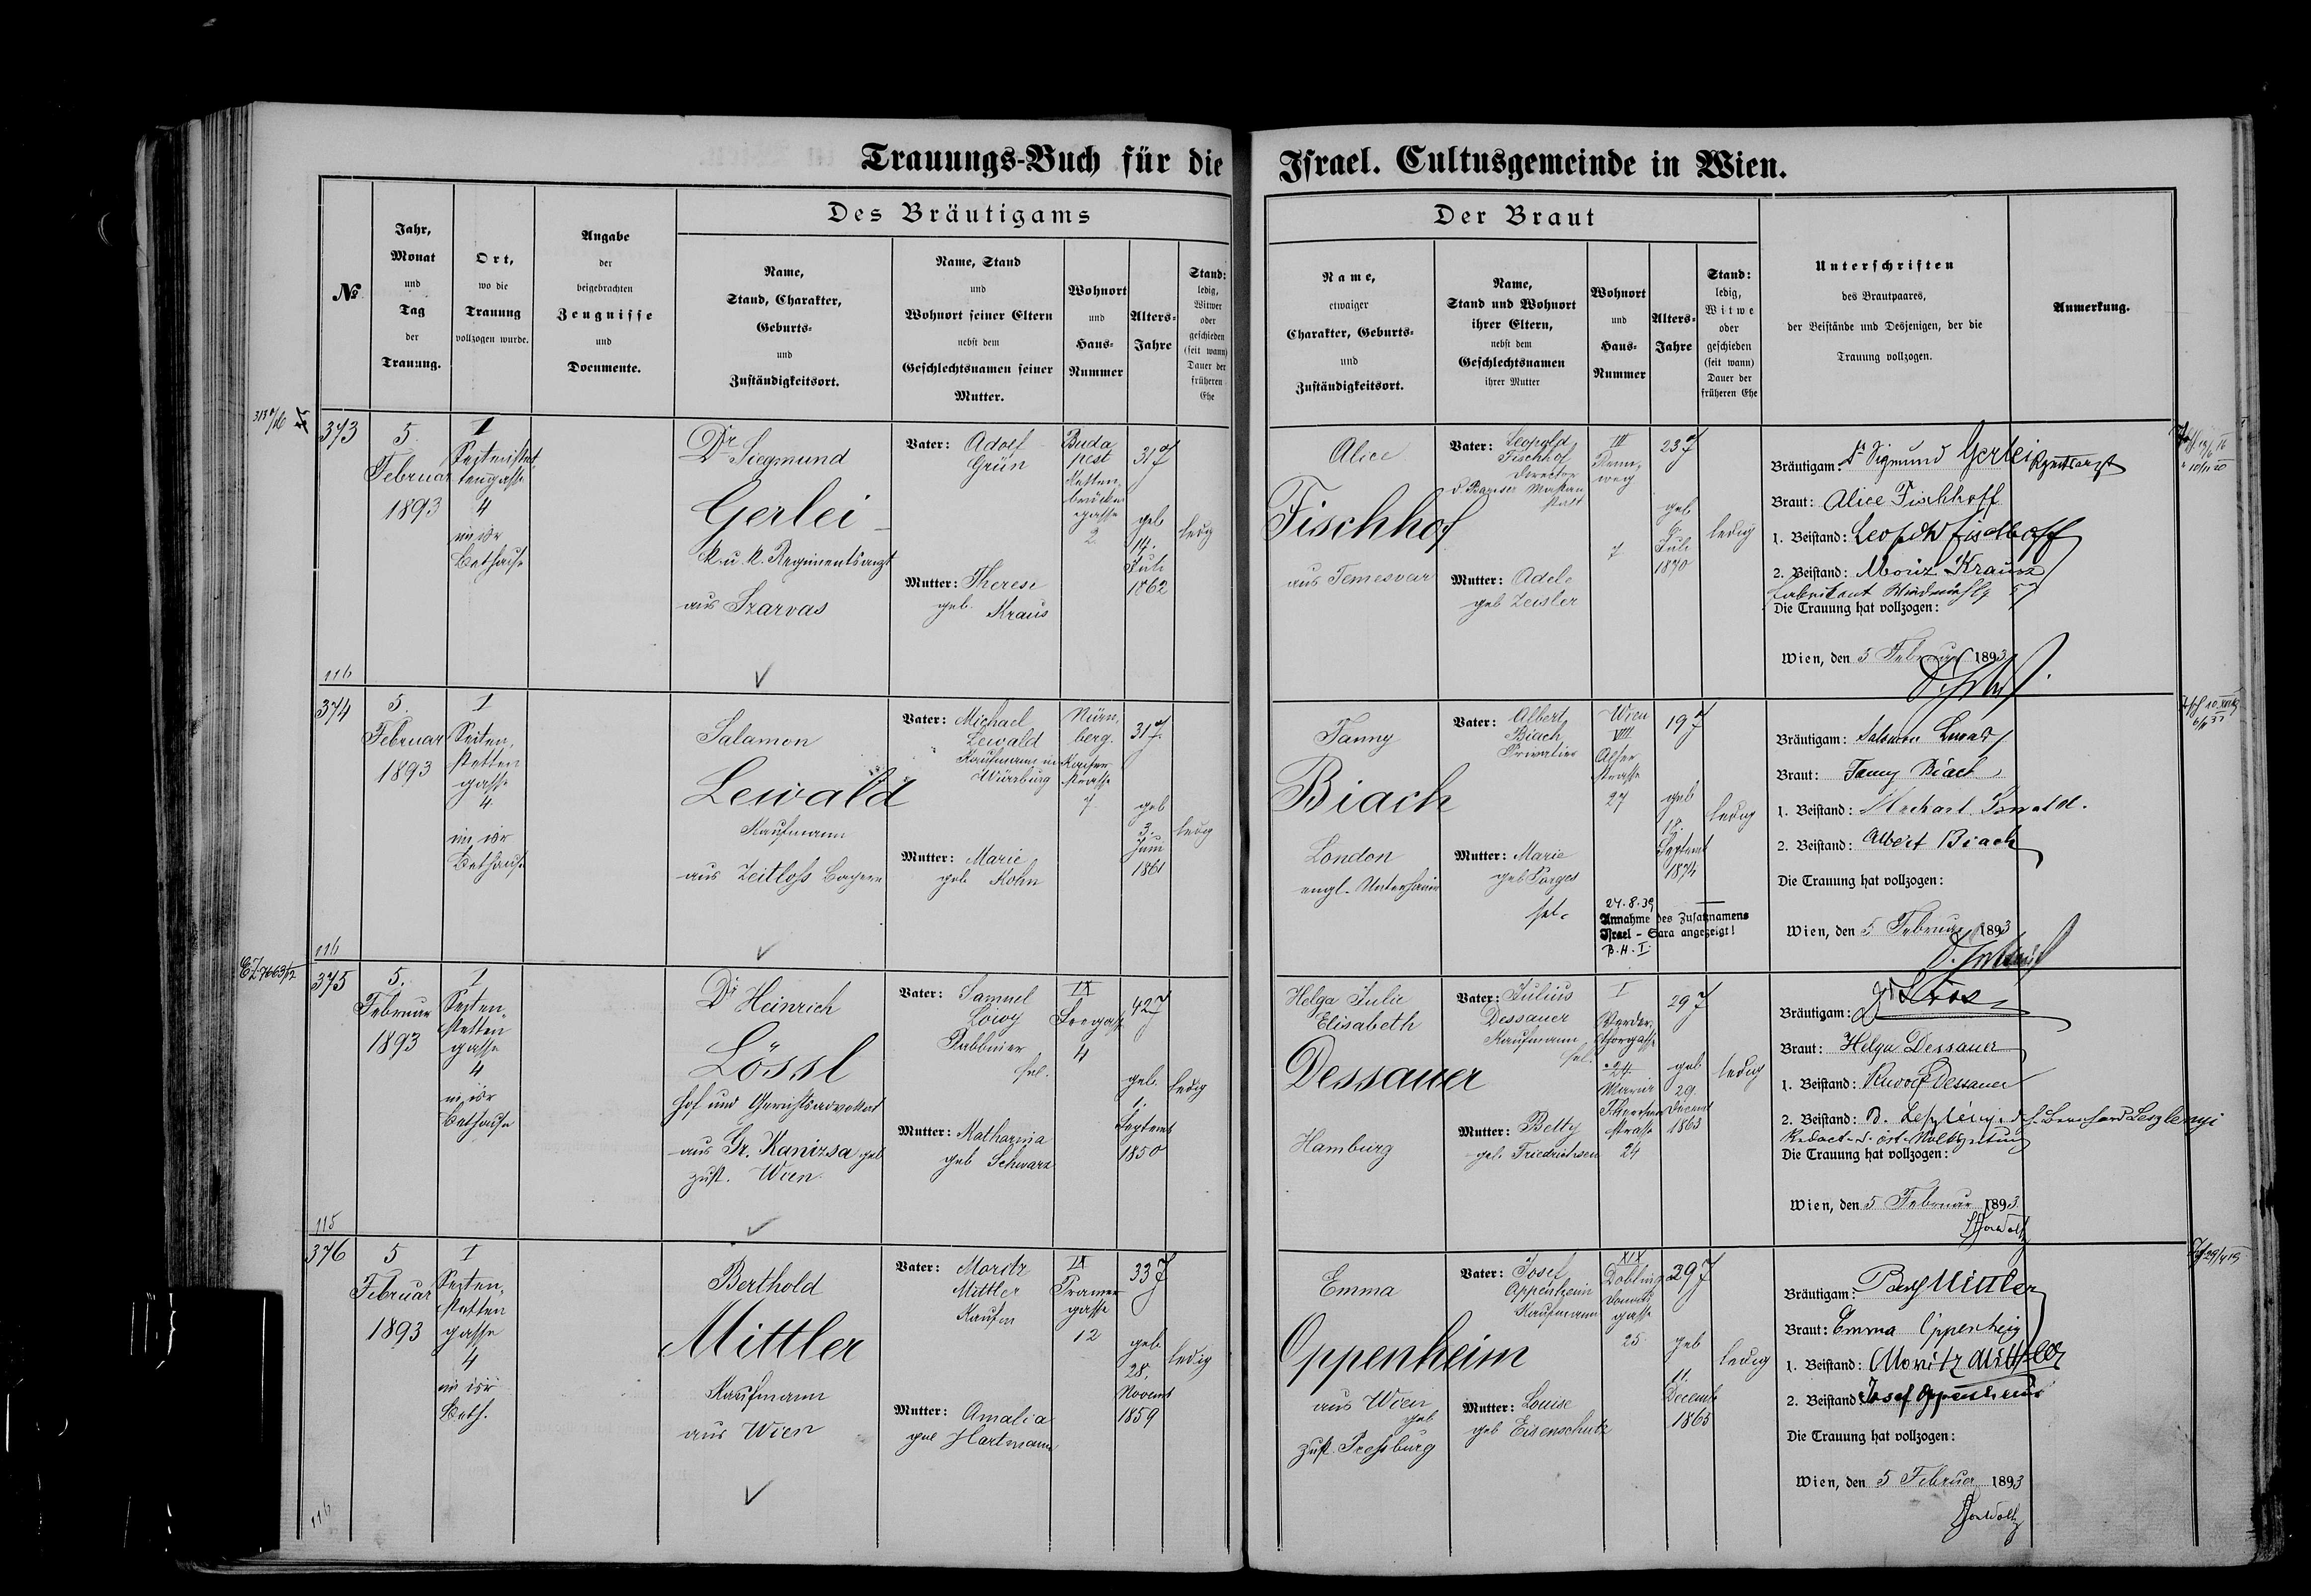 Trauungs-Buch für die Israel. Cultusgemeinde in Wien.
Des Bräutigams
Der Braut
№
Jahr,
Monat
und
Tag
der
Trauung.
Ort,
wo die
Trauung
vollzogen wurde.
Angabe
der
beigebrachten
Zeugnisse
und
Documente.
Name,
Stand, Charakter,
Geburts-
und
Zuständigkeitsort.
Name, Stand
und
Wohnort seiner Eltern
nebst dem
Geschlechtsnamen seiner
Mutter.
Wohnort
und
Haus-
Nummer
Alters-
Jahre
Stand:
ledig,
Witwer
oder
geschieden
(seit wann)
Dauer der
früheren
Ehe
Name,
etwaiger
Charakter, Geburts-
und
Zuständigkeitsort.
Name,
Stand und Wohnort
ihrer Eltern,
nebst dem
Geschlechtsnamen
ihrer Mutter
Wohnort
und
Haus-
Nummer
Alters-
Jahre
Stand:
ledig,
Witwe
oder
geschieden
(seit wann)
Dauer der
früheren Ehe
Unterschriften
des Brautpaares,
der Beistände und Desjenigen, der die
Trauung vollzogen.
Anmerkung.
373
5.
Februar
1893
I
Seitenstet-
tengasse
4
im isr
Bethause
Dr Siegmund
Gerlei
k. u. k. Regimentsarzt
aus Szarvas
Vater: Adolf
Grün
Mutter: Therese
geb. Kraus
Buda
pest
Ketten-
brücken
gasse
2
31 J
geb
14.
Juli
1862
ledig
Alice
Fischhof
aus Temesvar
Vater: Leopold
Fischhof
Director
Mutter: Adele
geb Zeisler
III
Renn-
weg
7
23 J
geb
6.
Juli
1870
ledig
Bräutigam: Dr Sigmund Gerlei Regimentsarzt
Braut: Alice Fischhoff
1. Beistand: Leopold Fischhoff
2. Beistand: Moriz Krausz
Fabrikant Windmühlg
Die Trauung hat vollzogen:
Wien, den 5 Februar 1893
116
374
5.
Februar
1893
I
Seiten-
stetten
gasse
4
im isr
Bethause
Salamon
Lewald
Kaufmann
aus Zeitlofs Bayern
Vater: Michael
Lewald
Kaufmann in
Würzburg
Mutter: Marie
geb. Kohn
Nürn-
berg.
strasse
7
31 J.
geb
3.
Juni
1861
ledig
Fanny
Biach
London
engl. Unterthanin
Vater: Albert
Biach
Privatier
Mutter: Marie
geb Porges
sel.
Wien
VIII
Alser
strasse
27
19 J
geb
Septemb
1874
ledig
24.8.39
Annahme des Zusatznamens
Israel - Sara angezeigt!
B.H.I.
Bräutigam: Salomon Lewald
Braut: Fanny Biach
1. Beistand: Michael Lewald.
2. Beistand: Albert Biach
Die Trauung hat vollzogen:
Wien, den 5 Februar 1893
116
375
5.
Februar
1893
I
Seiten-
stetten
gasse
4
im isr
Bethause
Dr Heinrich
Lössl
Hof und Gerichtsadvokat
aus Gr. Kanizsa geb
zust. Wien
Vater: Samuel
Löwy
Rabbiner
sel.
Mutter: Katharina
geb Schwarz
IX
Seegasse
4
42 J
geb.
1.
Septemb
1850
ledig
Helga Julie
Elisabeth
Dessauer
Hamburg
Vater: Julius
Dessauer
Kaufmann
sel.
Mutter: Betty
geb. Friedrichsen
I
Werder-
thorgasse
24
Maria
Theresien
strasse
24
29 J
geb
29.
Decemb
1863
ledig
Bräutigam: Dr Lössl
Braut: Helga Dessauer
1. Beistand: Rudolf Dessauer
2. Beistand: B. Leszlényi d. h. Bernhard Leszlenyi
Redact. d. öst. Volkszeitung
Die Trauung hat vollzogen:
Wien, den 5 Februar 1893.
115
376
5
Februar
1893
I
Seiten-
stetten
gasse
4
im isr
Beth.
Berthold
Mittler
Kaufmann
aus Wien
Vater: Moritz
Mittler
Kaufm
Mutter: Amalia
geb Hartmann
IX
Pramer
gasse
12
33 J
geb.
28.
Novemb
1859
ledig
Emma
Oppenheim
aus Wien
geb
zust. Pressburg
Vater: Josef
Oppenheim
Kaufmann
Mutter: Louise
geb Eisenschütz
XIX
Döbling
Donau
gasse
25
29 J
geb
11.
Decemb
1863
ledig
Bräutigam: Berth Mittler
Braut: Emma Oppenheim
1. Beistand: Moritz Mittler
2. Beistand: Josef Oppenheim
Die Trauung hat vollzogen:
Wien, den 5 Februar 1893
116